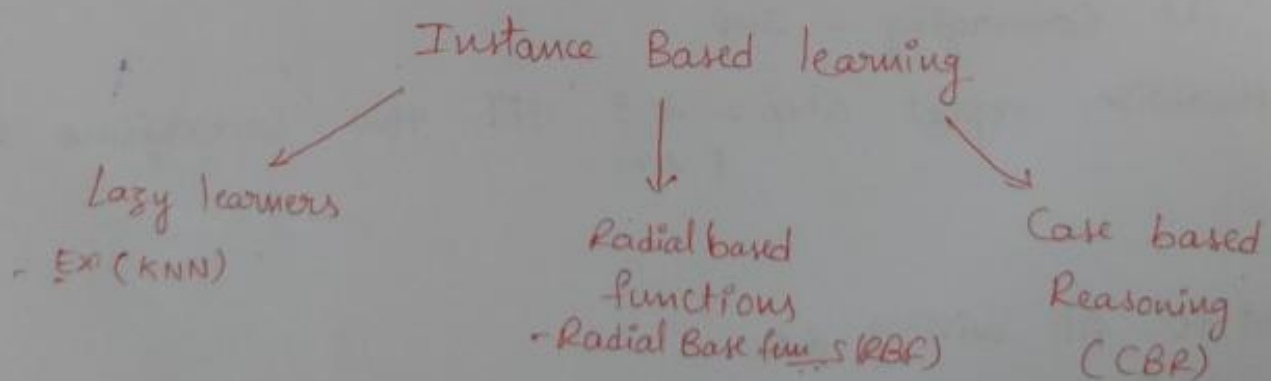 Instance Based learning
Lazy learners
- Ex (KNN)
Radial based
functions
- Radial Base fun s (RBF)
Case based
Reasoning
(CBR)